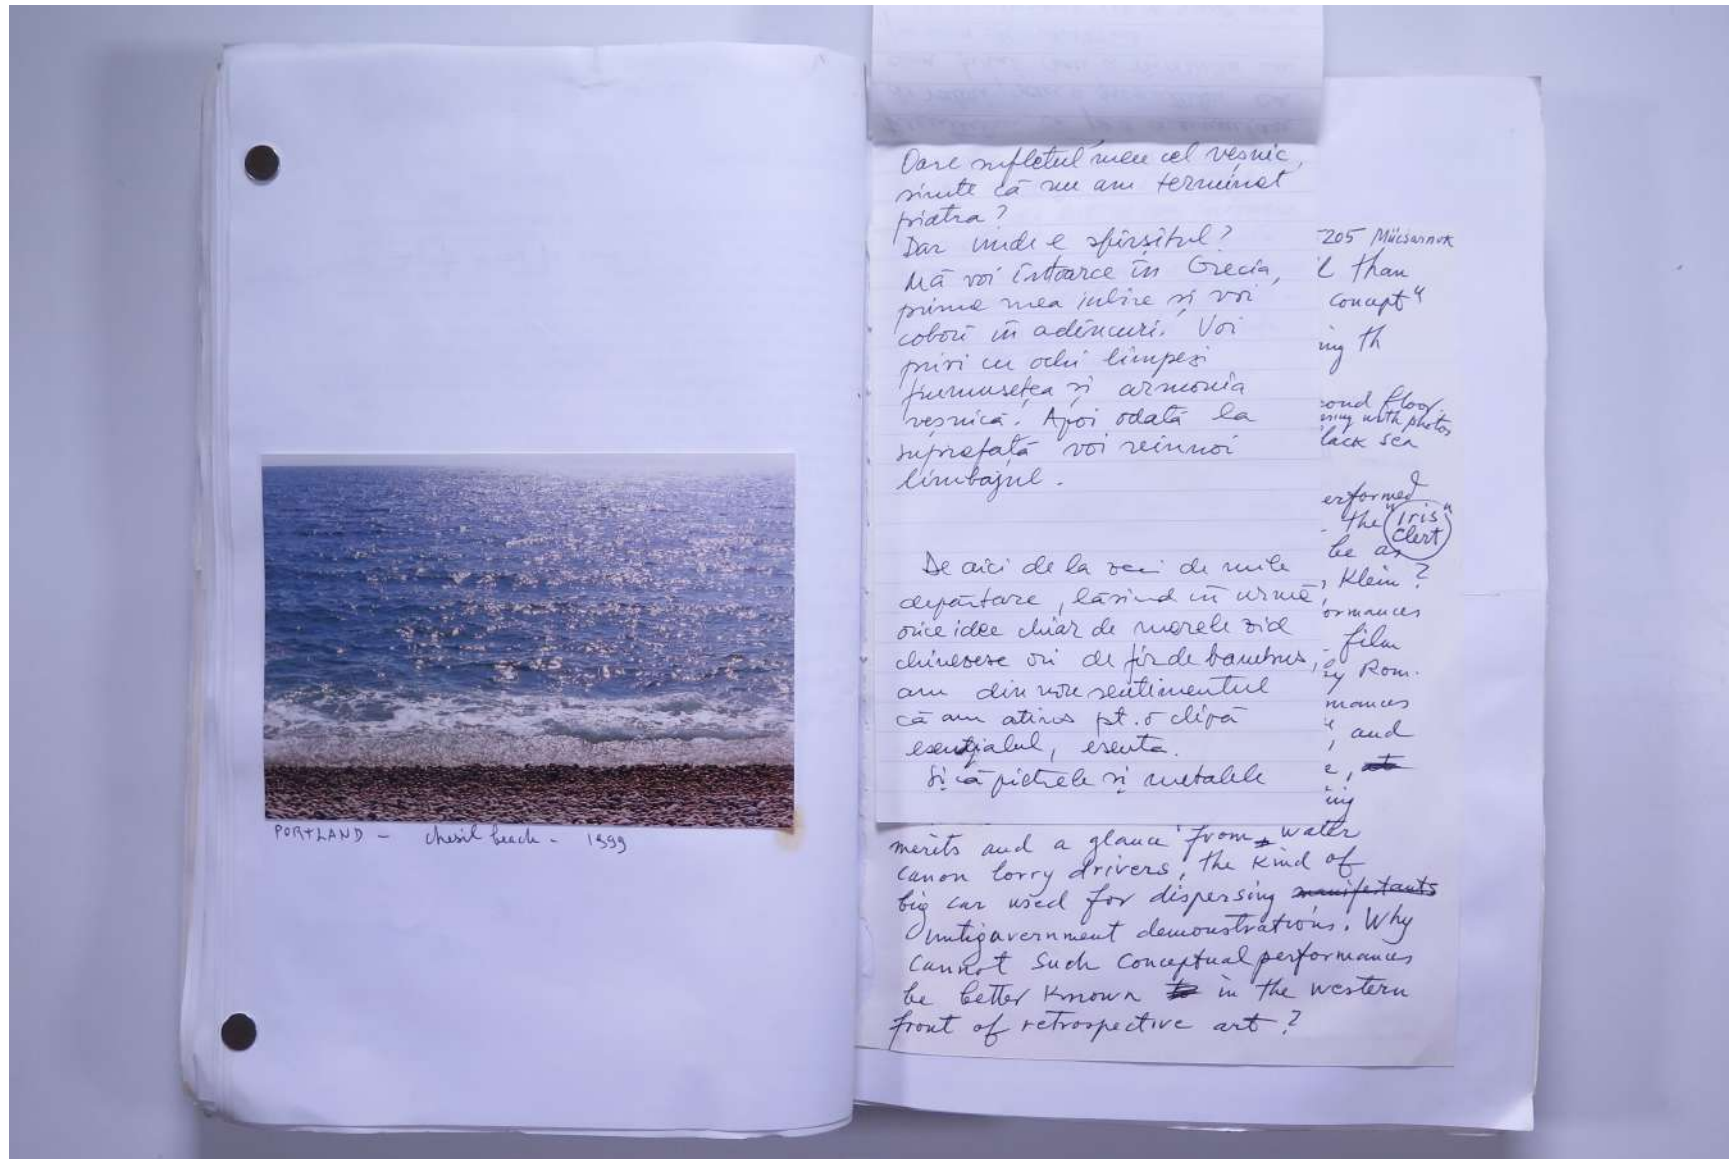 PORTLAND - chesil beach - 1999
Oare sufletul meu cel veșnic,
simte că nu am terminat
piatra?
Dar unde e sfîrșitul?
Mă voi întoarce în Grecia,
prima mea iubire și voi
coborî în adîncuri. Voi
privi cu ochi limpezi
frumusețea și armonia
veșnică. Apoi odată la
suprafață voi reinnoi
limbajul.
De aici de la zeci de mile
depărtare, lăsînd în urmă,
orice idee chiar de marele zid
chinezesc ori de fir de bambus,
am din nou sentimentul
că am atins pt. o clipă
esențialul, esența.
Și că pietrele și metalele
205 Mücsarnok
than
concept"
ing th
ond floor.
with photos
lack sea
erformed
the "Iris
Clert"
be as
, Klein?
ormances
film
Rom.
mances
, and
ing
merits and a glance from water
canon lorry drivers, the kind of
big car used for dispersing manifestants
antigavernment demonstrations. Why
cannot such conceptual performances
be better known to in the western
front of retrospective art?